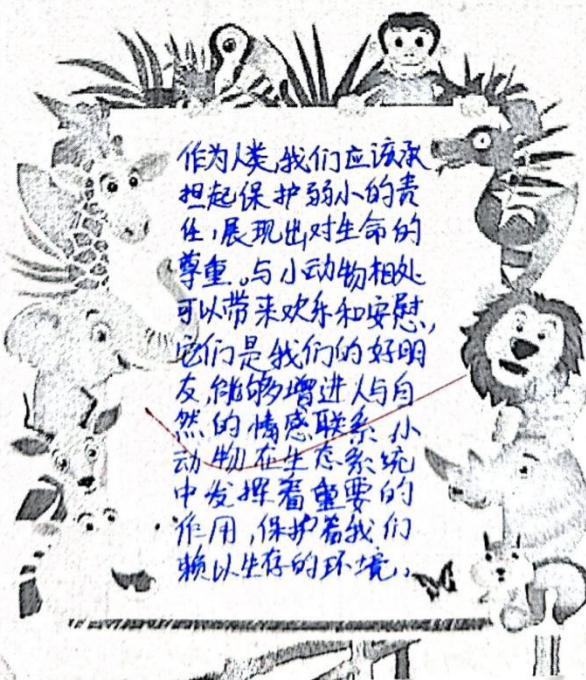 作为人类,我们应该承
担起保护弱小的责
任,展现出对生命的
尊重。与小动物相处
可以带来欢乐和安慰,
它们是我们的好朋
友,能够增进人与自
然的情感联系,小
动物在生态系统
中发挥着重要的
作用,保护着我们
赖以生存的环境。